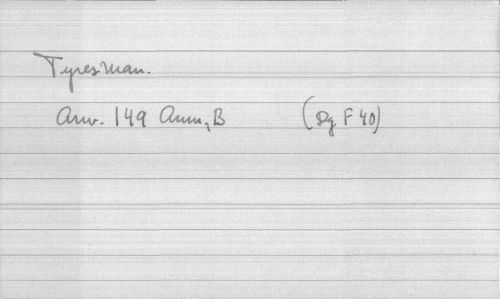 Tyresman.
Anv. 149 Anm, B (Dg F 40)